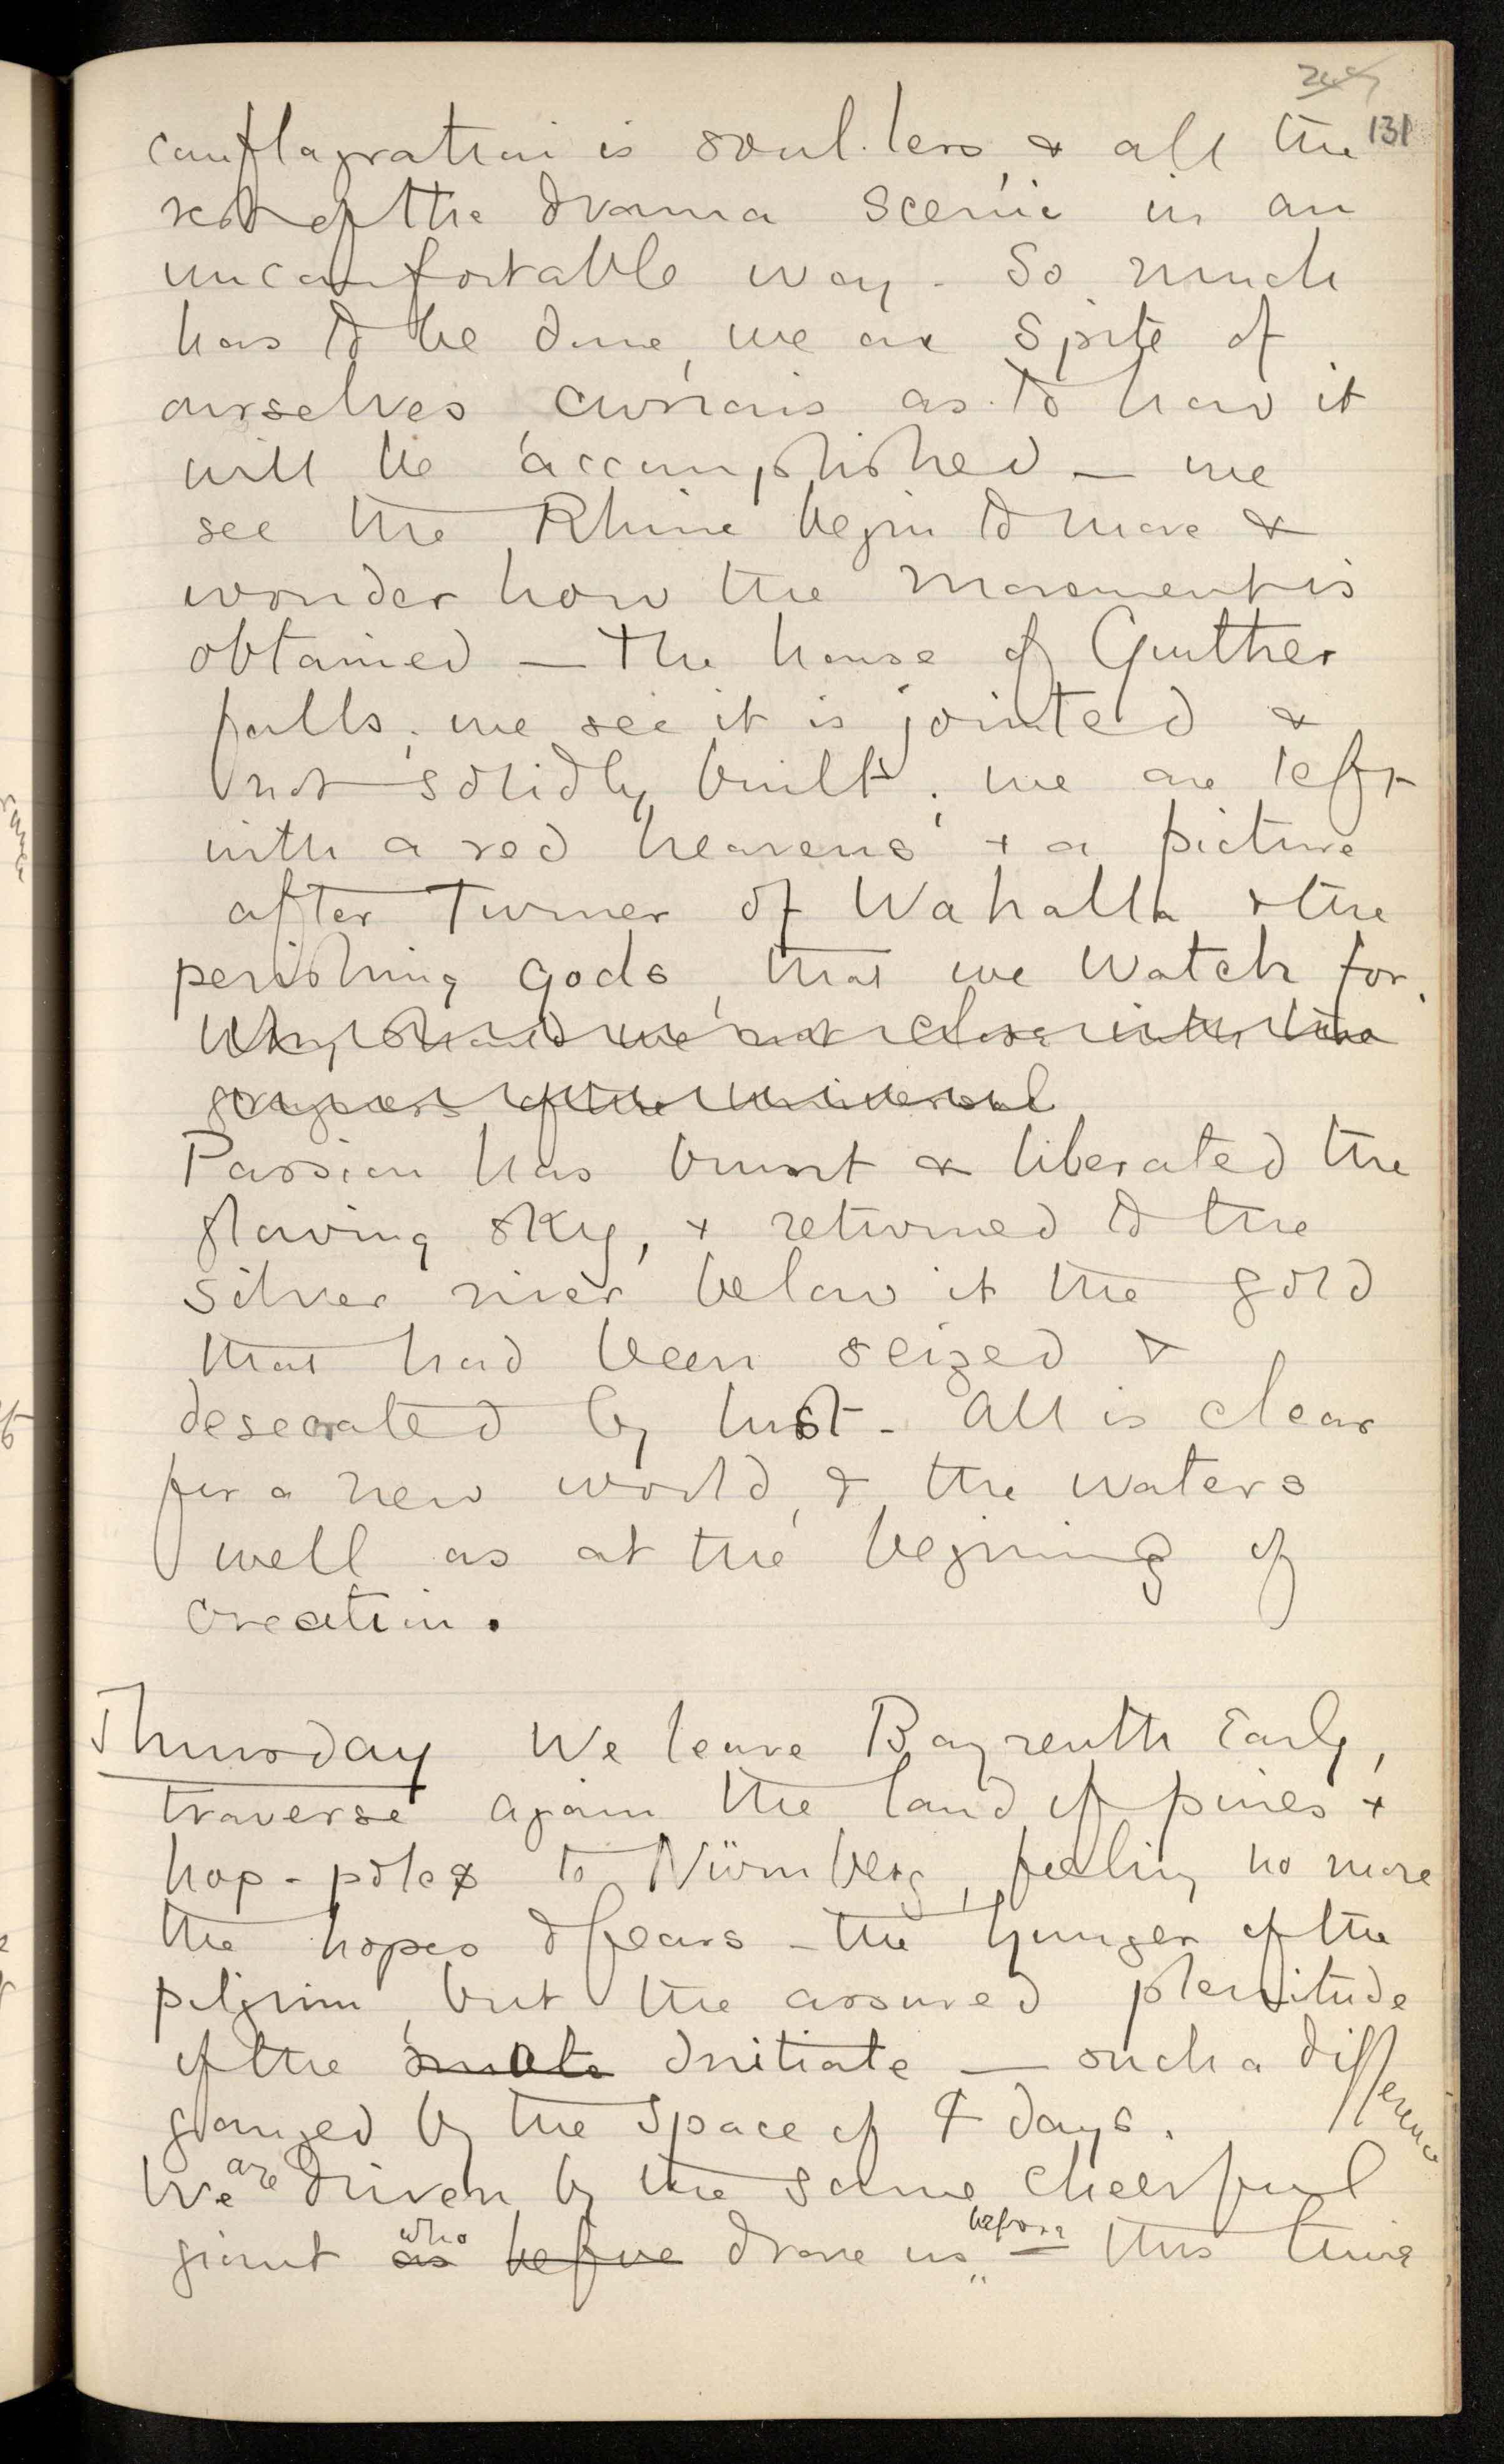 131
conflagration is soul-less, & all the
rest of the drama scenic in an
uncomfortable way. So much
has to be done, we are spite of
ourselves, curious as to how it
will be accomplished — we
see the Rhine begin to move &
wonder how the movement is
obtained — the house of Gunther
falls; we see it is jointed &
not solidly built; we are left
with a red heavens, + a picture
after Turner of Wahalla & the
perishing gods, that we watch for.
Why should we not close with the
of the Universal
Passion has burnt & liberated the
glowing sky, + returned to the
silver river below it the gold
that had been seized &
desecrated by lust. All is clear
for a new world, & the waters
well as at the begining of
creation.
Thursday We leave Bayreuth Early,
traverse again the land of pines +
hop-poles to Nürnberg, feeling no more
the hopes & fears — the hunger of the
pilgrim, but the assured plenitude
of the Initiate — such a difference
gauged by the space of 4 days.
We are driven by the same cheerful
giant as who before drove us before — this time